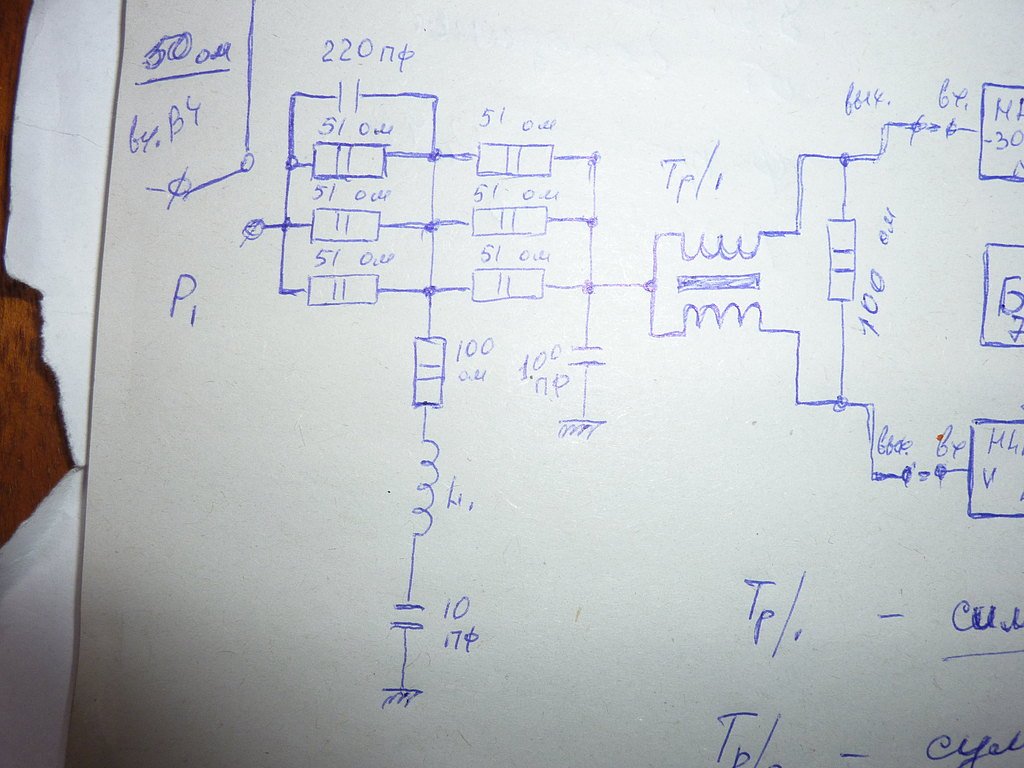 50 ом
220 пф
вх. ВЧ
51 ом
51 ом
51 ом
51 ом
51 ом
51 ом
Р₁
Тр/₁
вых.
вх.
-30
100 ом
100 ом
100 пф
L₁
10 пф
вых.
вх
Тр/₁ -
Тр/₂ -